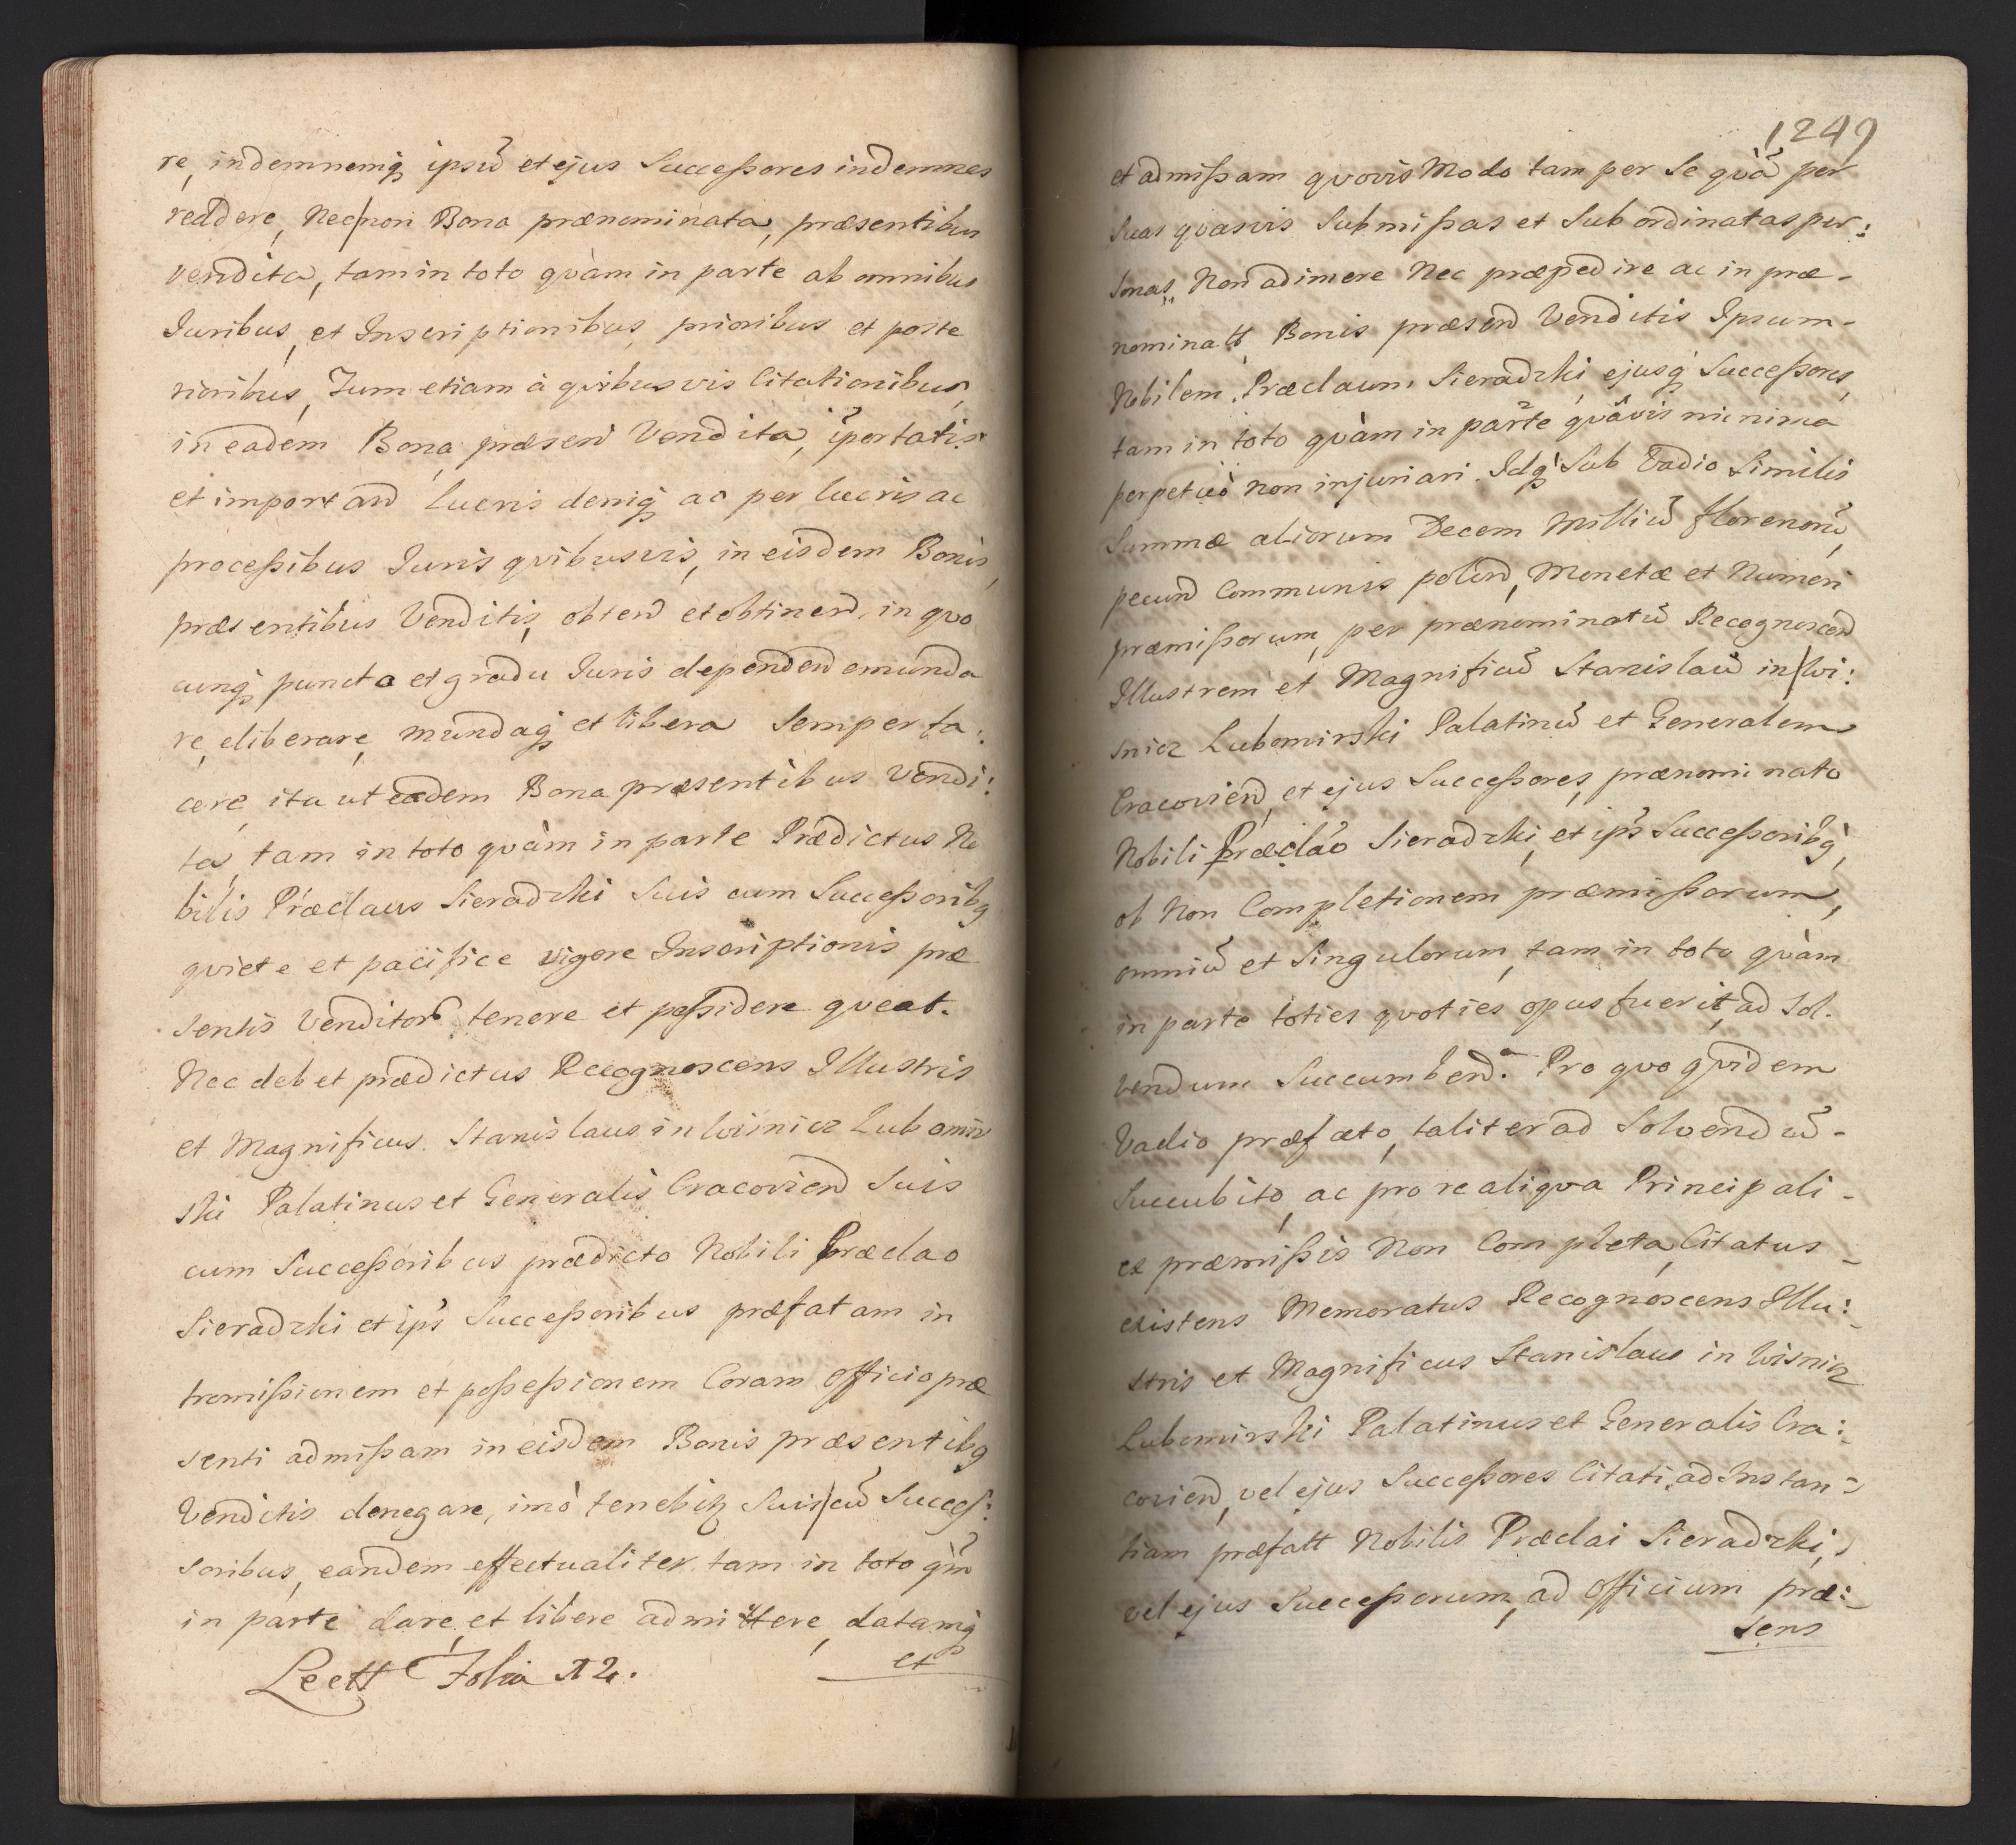 re, indemnemq́ ipsũ et ejus Succeßores indemnes
reddere, Nec|non Bona prænominata, præsentibus
vendita, tam in toto qvàm in parte ab omnibus
Juribus, et Inscriptionibus, prioribus et poste
rioribus, Tum etiam à qvibusvis Citationibus,
in eadem Bona præsen̄ Vendita, ĩportatis
et importan̄ lucris deniq́ ac per lucris ac
proceßibus Juris qvibusvis, in eisdem Bonis,
præsentibus Venditis, obten̄ et obtinen̄, in qvo
cunq́ puncto et gradu Juris dependen̄ emunda
re, eliberare, mundaq́ et libera Semper fa:
cere, ita ut eadem Bona præsentibus Vendi:
ta, tam in toto qvàm in parte Prædictus No
bilis Præclaus Sieradzki Suis cum Succeßoribq
qviete et pacifice vigore Inscriptionis præ
sentis Venditor̃ tenere et poßidere qveat.
Nec debet prædictus Recognoscens Illustris
et Magnificus Stanislaus in Wisnicz Lubomir
ski Palatinus et Generalis Cracovien̄ Suis
cum Succeßoribus prædicto Nobili Præclao
Sieradzki et ip̃s Succeßoribus præfatam in
tromißionem et poßeßionem Coram Officio præ
senti admißam in eisdem Bonis præsentibq
Venditis denegare, imò tenebitꝛ Suis|cũ Succeß:
soribus, eandem effectualiter tam in toto qm̃
in parte dare, et libere admittere, datamq́
et
Lectt Folia 12.
1249
et admißam qvovis Modo tam per Se qvã per
Suas qvasvis Submißas et Subordinatas per:
sonas, Non adimere Nec præpedire ac in præ-
nominatt Bonis præsen̄ Venditis Ipsum-
Nobilem Præclaum Sieradzki, ejusq́ Succeßores,
tam in toto qvàm in parte qvãvis minima
perpetuò non injuriari. Idq́ Sub Vadio Similis
Summæ aliorum Decem Milliũ florenorũ,
pecun̄ Communis polon̄, Monetæ et Numeri
præmißorum, per prænominatũ Recognoscen̄
Illustrem et Magnificũ Stanislaũ in|Wi:
snicz Lubomirski Palatinũ et Generalem
Cracovien̄, et ejus Succeßores, prænominato
Nobili Præclao Sieradzki, et ip̃s Succeßoribq́,
ob Non Completionem præmißorum,
omniũ et Singulorum, tam in toto qvàm
in parte toties qvoties opus fuerit, ad Sol.
vendum Succumben̄. Pro qvo qvidem
Vadio præfato, taliter ad Solvendũ-
Succubito, ac pro re aliqva Principali-
ex præmißis Non Completa, Citatus-
existens Memoratus Recognoscens Illu:
stris et Magnificus Stanislaus in Wisnicz
Lubomirski Palatinus et Generalis Cra:
covien̄, vel ejus Succeßores Citati, ad Instan=
tiam præfatt Nobilis Præclai Sieradzki,
vel ejus Succeßorum, ad Officium præ:
sens